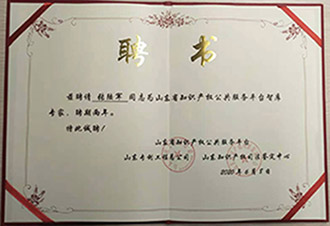 聘书
兹聘请 张继军 同志为山东省知识产权公共服务平台智库
专家，聘期两年。
特此试聘！
山东省知识产权公共服务平台
山东专利工程总公司 山东知识产权司法鉴定中心
2020年6月8日